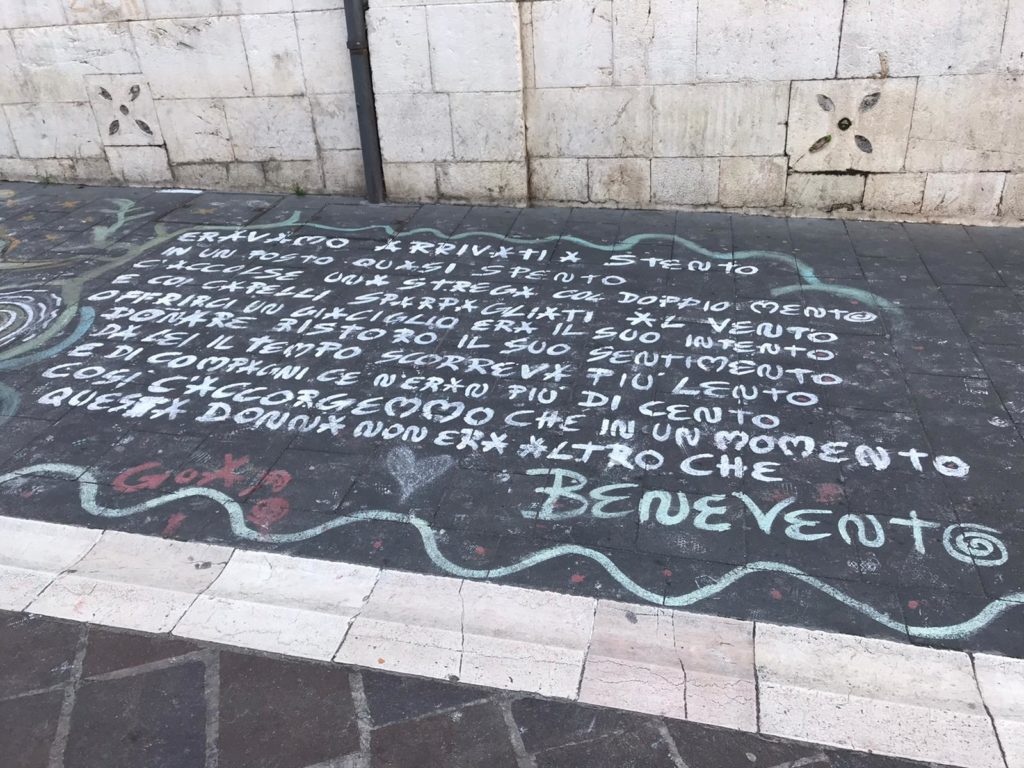 ERAVAMO ARRIVATI A STENTO
IN UN POSTO QUASI SPENTO
C'ACCOLSE UNA STREGA COL DOPPIO MENTO
E COI CAPELLI SPARPAGLIATI AL VENTO
OFFRIRCI UN GIACIGLIO ERA IL SUO INTENTO
DONARE RISTORO IL SUO SENTIMENTO
DA LEI IL TEMPO SCORREVA PIÙ LENTO
E DI COMPAGNI CE N'ERAN PIÙ DI CENTO
COSÌ C'ACCORGEMMO CHE IN UN MOMENTO
QUESTA DONNA NON ERA ALTRO CHE
BENEVENTO